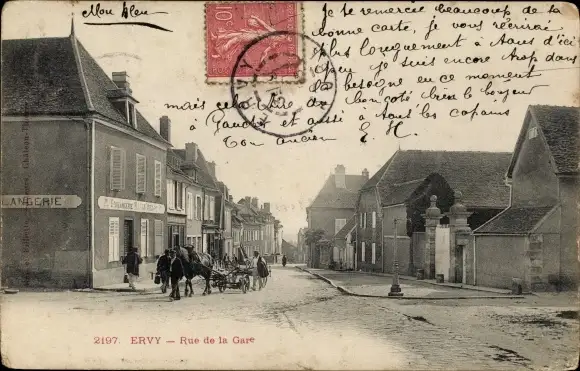 Mon bleu
Je te remercie beaucoup de ta
bonne carte, je vous récrirai
plus longuement à tous d'ici
peu je suis encore trop dans
la besogne en ce moment
mais cela tire de bon côté bien le bonjour
à Gauché et aussi à tous les copains
Ton ancien G. H.
ERVY
LANGERIE
2197. ERVY — Rue de la Gare